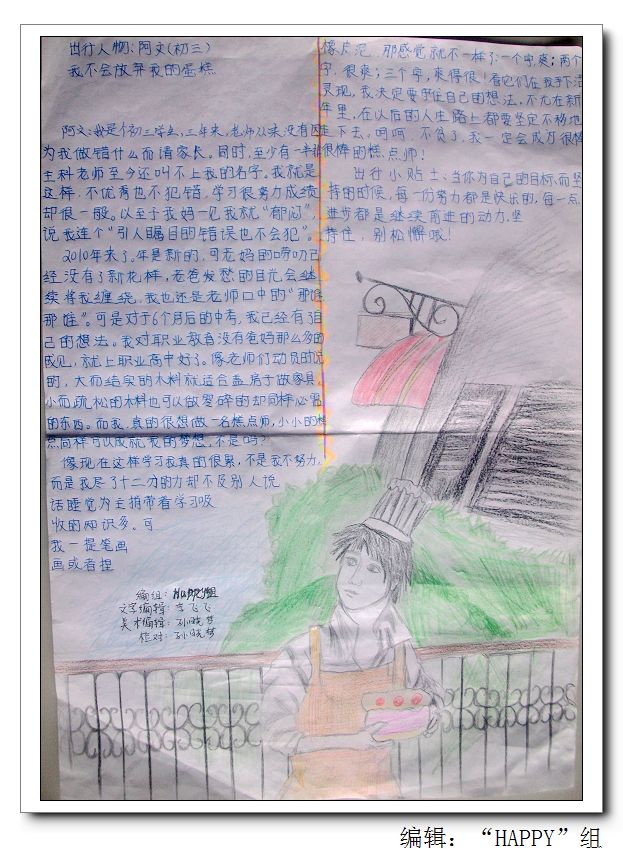 出行人物:阿文(初三)
我不会放弃我的蛋糕
阿文:我是个初三学生,三年来,老师从来没有因
为我做错什么而请家长。同时,至少有一半非
主科老师至今还叫不上我的名字。我就是
这样,不优秀也不犯错,学习很努力成绩
却很一般。以至于我妈一见我就“郁闷”,
说我连个“引人瞩目的错误也不会犯”。
2010年来了。年是新的,可老妈的唠叨已
经没有了新花样,老爸发愁的目光会继
续将我缠绕,我也还是老师口中的“那谁
那谁”。可是对于6个月后的中考,我已经有了自
己的想法。我对职业教育没有爸妈那么多的
成见,就上职业高中好了。像老师们动员时说
的,大而结实的木料就适合盖房子做家具,
小而疏松的木料也可以做零碎的却同样必需
的东西。而我,真的很想做一名糕点师,小小的糕
点同样可以成就我的梦想,不是吗?
像现在这样学习我真的很累,不是我不努力,
而是我尽了十二分的力却不及别人说
话睡觉为主捎带着学习吸
收的知识多。可
我一提笔画
画或者捏
编组:HAPPY组
文字编辑:李飞飞
美术编辑:孙晓梦
校对:孙晓梦
橡皮泥,那感觉就不一样了:一个字,爽;两个
字,很爽;三个字,爽得很!看它们在我手下活
灵现,我决定要守住自己的想法,不光在新
年里,在以后的人生路上都要坚定不移地
走下去。呵呵,不贫了,我一定会成为很棒
很棒的糕点师!
出行小贴士:当你为自己的目标而坚
持的时候,每一份努力都是快乐的,每一点
进步都是继续前进的动力。坚
持住,别松懈哦!
编辑:“HAPPY”组